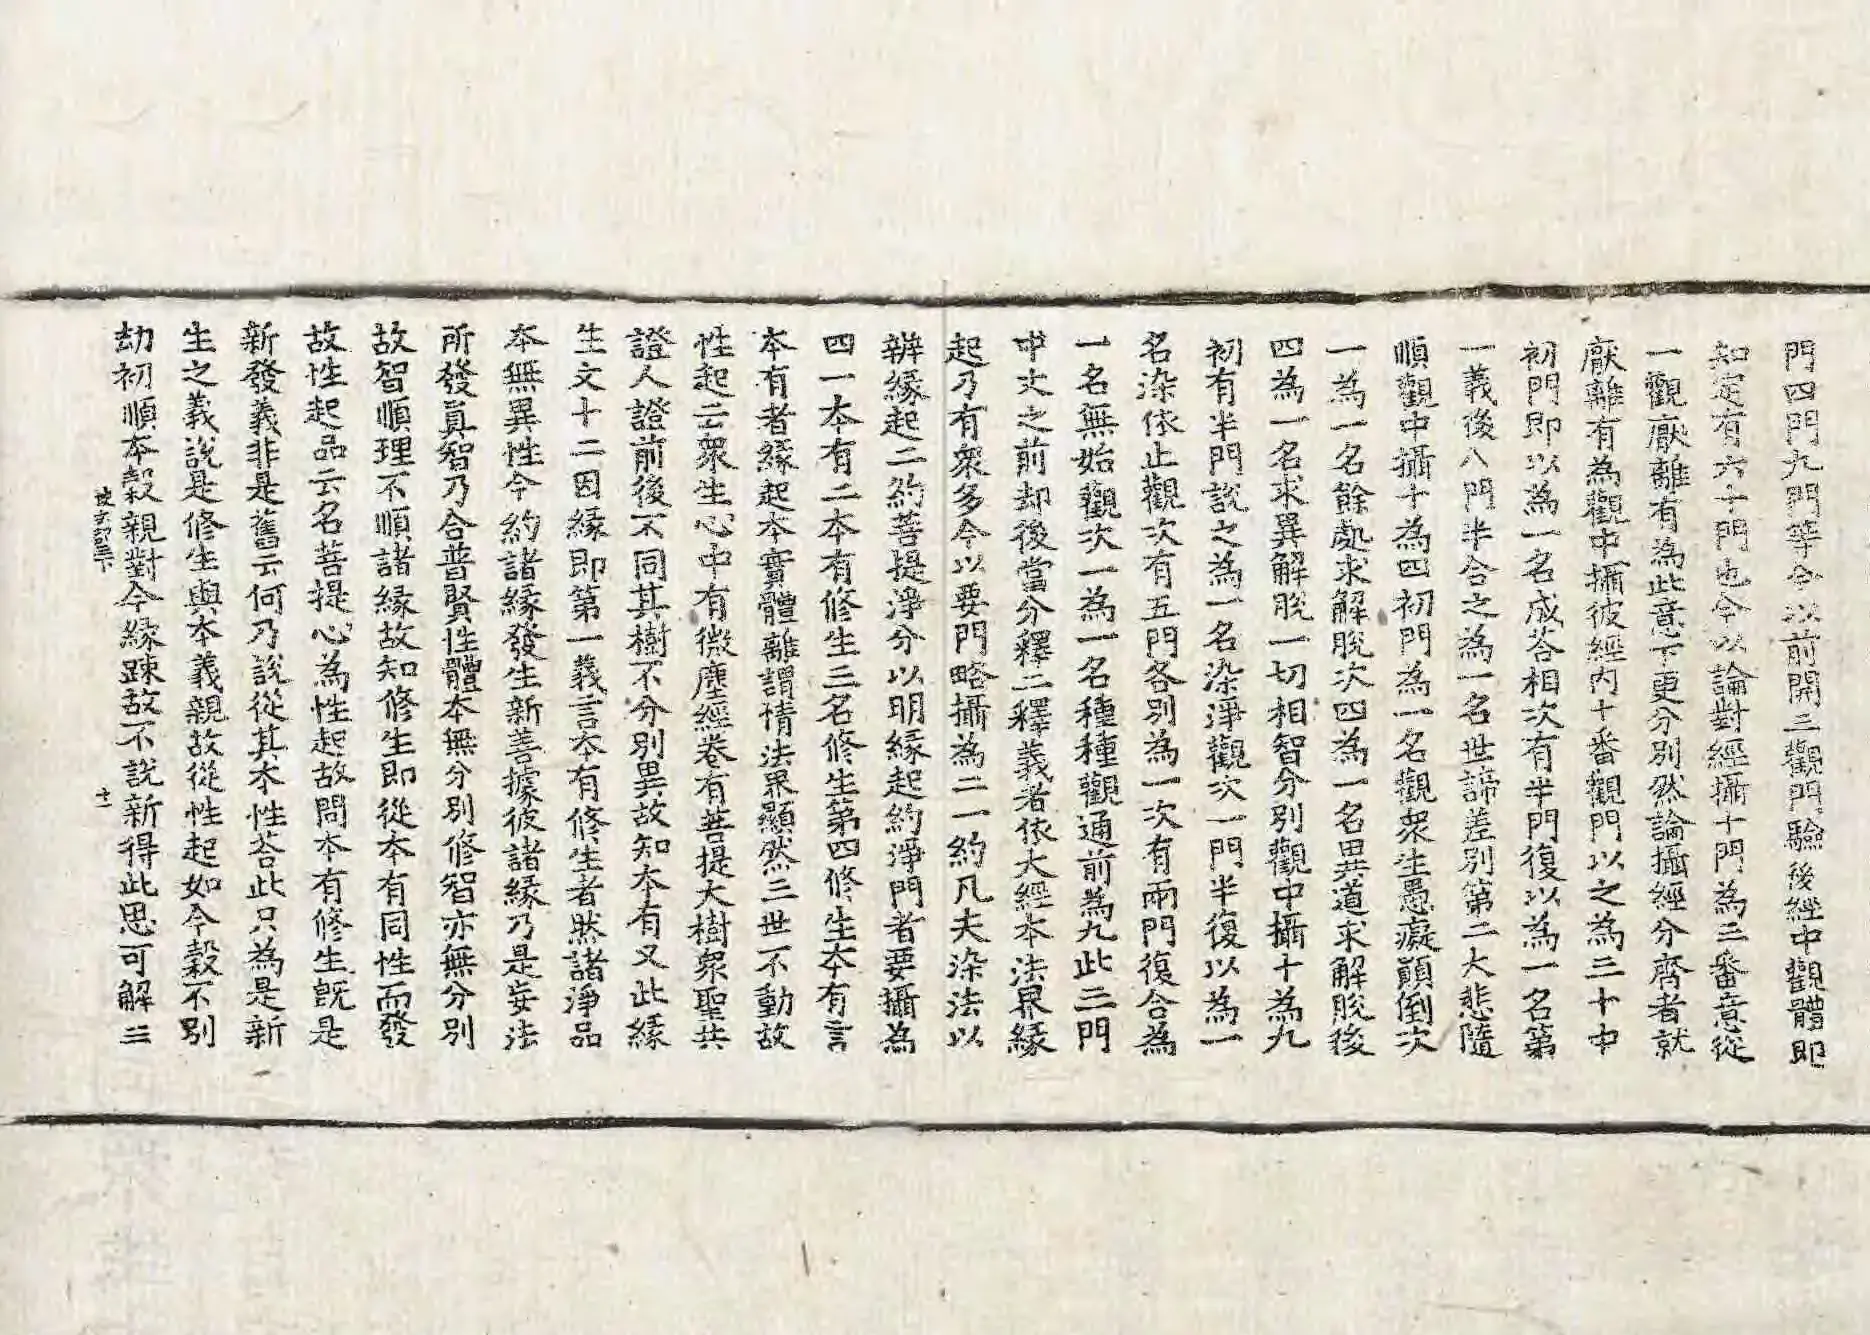 門四門九門等今以前開三觀門驗後經中觀體即
知定有六十門也今以論對經攝十門為三番意從
一觀厭離有為此意下更分別然論攝經分齊者就
厭離有為觀中攝彼經內十番觀門以之為三十中
初門即以為一名成荅相次有半門復以為一名第
一義後八門半合之為一名世諦差別第二大悲隨
順觀中攝十為四初門為一名觀衆生愚癡顛倒次
一為一名餘處求解脫次四為一名異道求解脫後
四為一名求異解脫一切相智分別觀中攝十為九
初有半門說之為一名染淨觀次一門半復以為一
名染依止觀次有五門各別為一次有兩門復合為
一名無始觀次一為一名種種觀通前為九此三門
中文之前却後當分釋二釋義者依大經本法界緣
起乃有衆多今以要門略攝為二一約凡夫染法以
辨緣起二約菩提淨分以明緣起約淨門者要攝為
四一本有二本有修生三名修生第四修生本有言
本有者緣起本實體離謂情法界顯然三世不動故
性起云衆生心中有微塵經卷有菩提大樹衆聖共
證人證前後不同其樹不分別異故知本有又此緣
生文十二因緣即第一義言本有修生者然諸淨品
本無異性今約諸緣發生新善據彼諸緣乃是妄法
所發真智乃合普賢性體本無分別修智亦無分別
故智順理不順諸緣故知修生即從本有同性而發
故性起品云名菩提心為性起故問本有修生既是
新發義非是舊云何乃說從其本性荅此只為是新
生之義說是修生與本義親故從性起如今穀不別
劫初順本穀親對今緣踈故不說新得此思可解三
十一